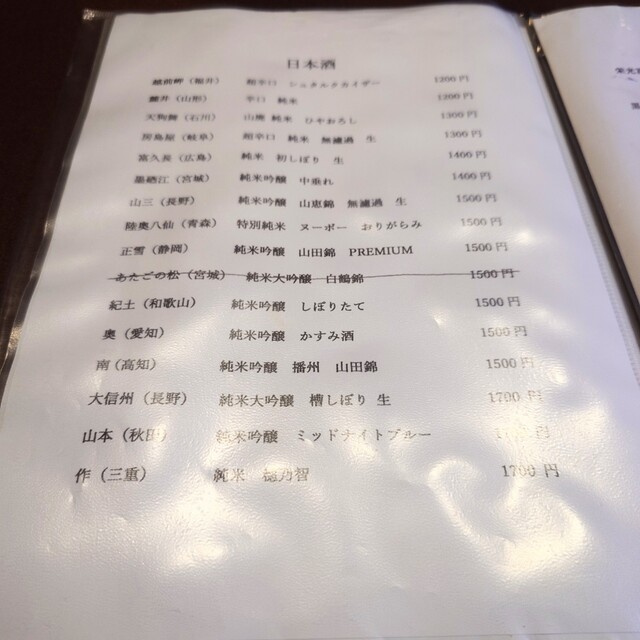 日本酒
越前岬（福井） 超辛口 シュタルクカイザー 1200円
鯉川（山形） 辛口 純米 1200円
天狗舞（石川） 山廃 純米 ひやおろし 1300円
房島屋（岐阜） 超辛口 純米 無濾過 生 1300円
富久長（広島） 純米 初しぼり 生 1400円
墨廼江（宮城） 純米吟醸 中垂れ 1400円
山三（長野） 純米吟醸 山恵錦 無濾過 生 1500円
陸奥八仙（青森） 特別純米 ヌーボー おりがらみ 1500円
正雪（静岡） 純米吟醸 山田錦 PREMIUM 1500円
あたごの松（宮城） 純米大吟醸 白鶴錦 1500円
紀土（和歌山） 純米吟醸 しぼりたて 1500円
奥（愛知） 純米吟醸 かすみ酒 1500円
南（高知） 純米吟醸 播州 山田錦 1500円
大信州（長野） 純米大吟醸 槽しぼり 生 1700円
山本（秋田） 純米吟醸 ミッドナイトブルー 円
作（三重） 純米 穂乃智 1700円